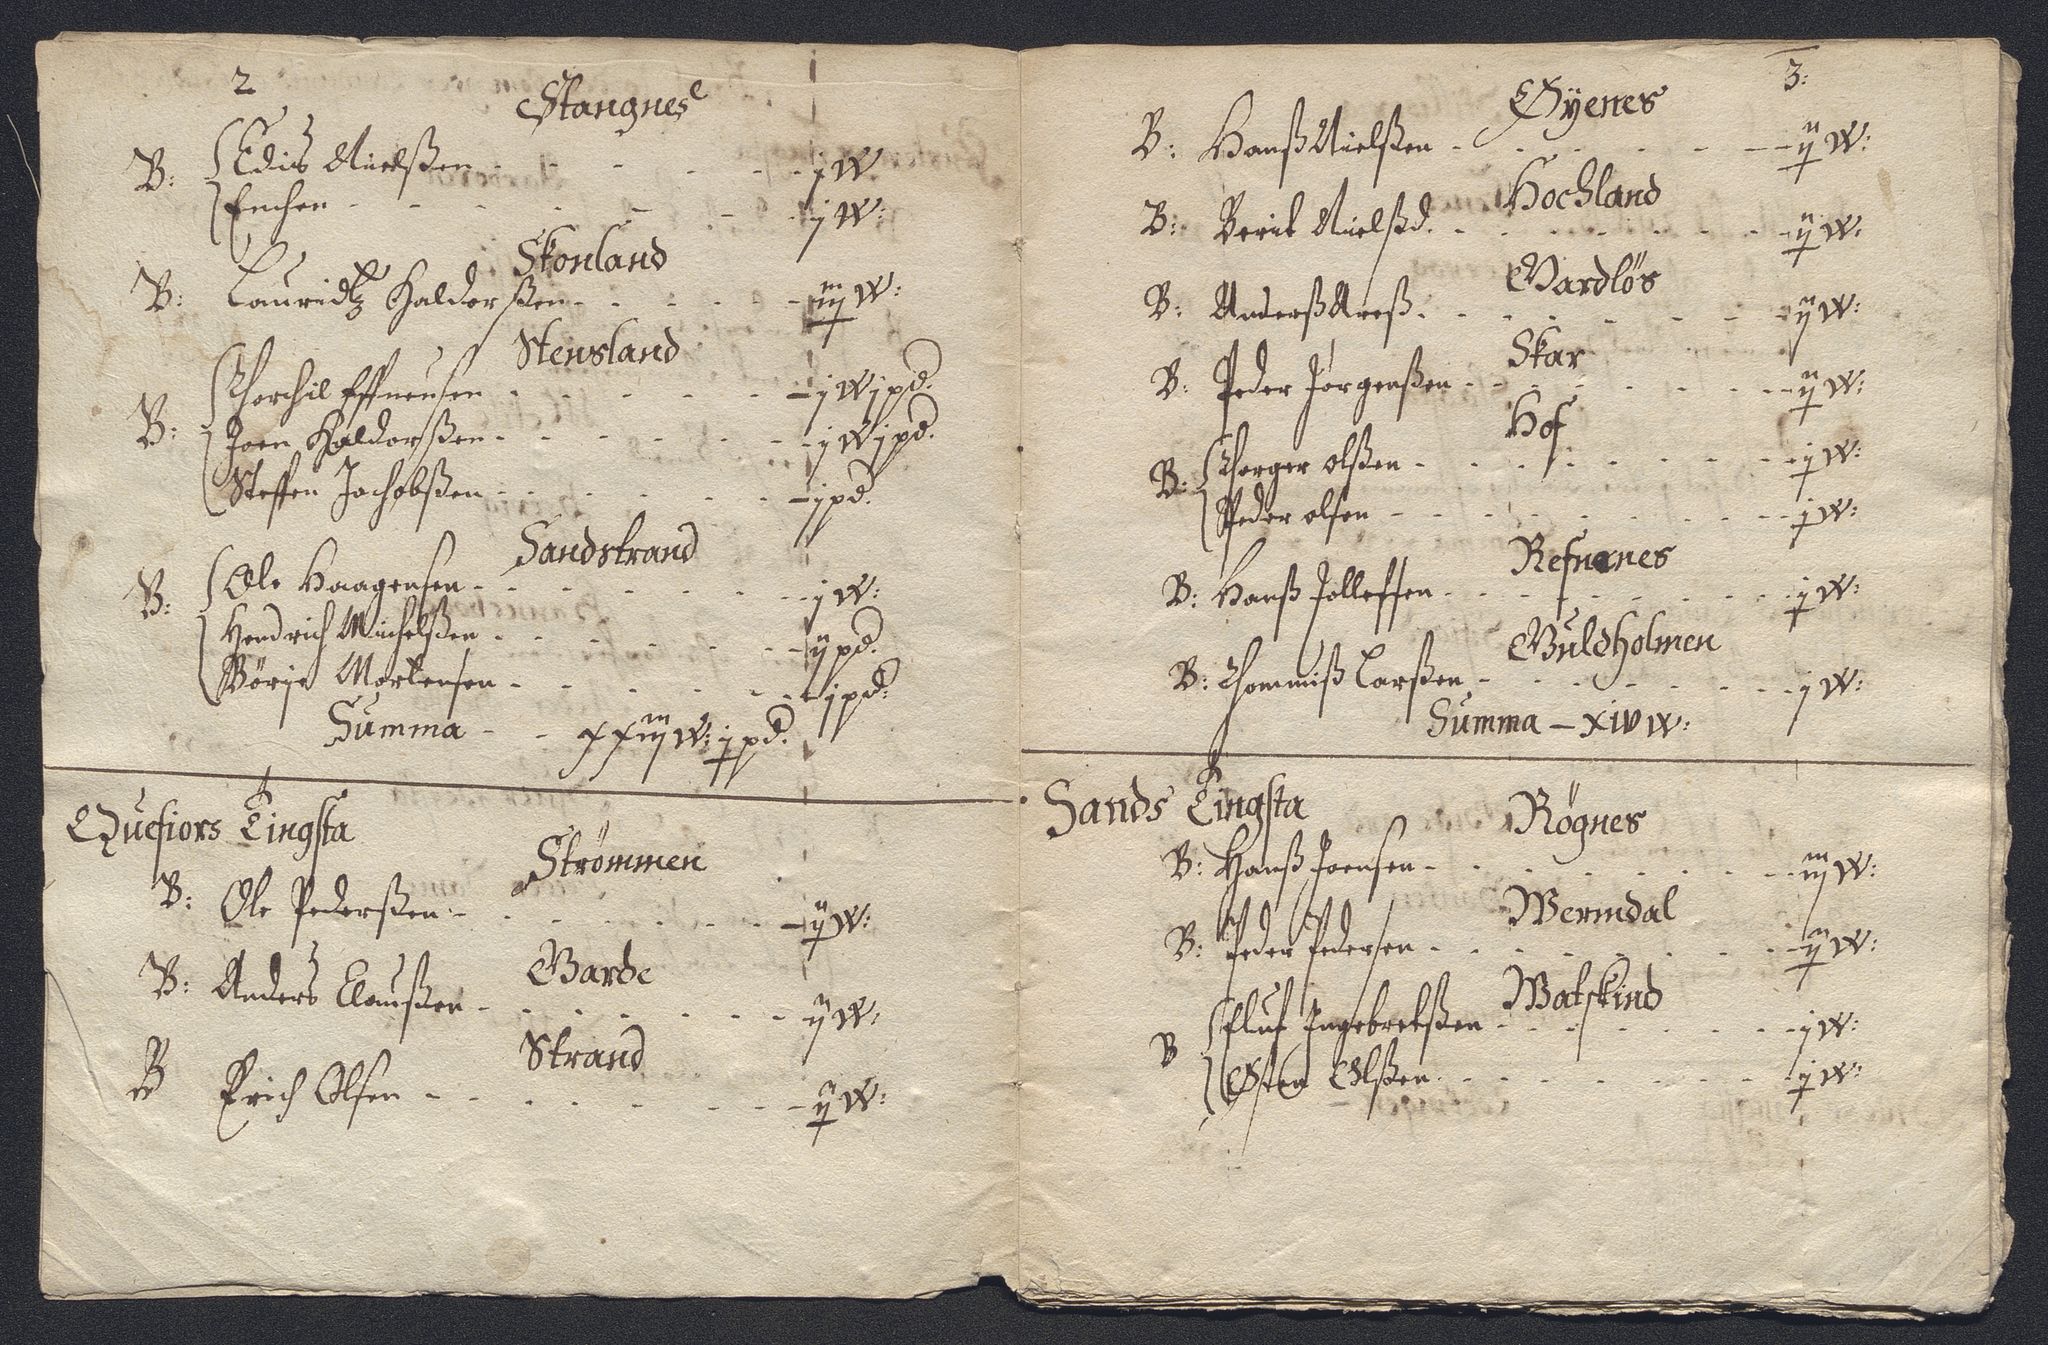 2
Stangnes
B: Edis Nielßen - - - - - - j W
Enchen - - - - - - j W:
Skonland
B: Lauridtz Haldorßen - - - - - iij W:
Stensland
B: Thorchil Effuensen - - - - - j W j pd.
Joen Haldorßen - - - - - - j W j pd.
Steffen Jachobßen - - - - - j pd.
Sandstrand
B: Ole Haagensen - - - - - - j W:
Hendrich Michelßen - - - - - ij pd.
Börge Mortensen - - - - - j pd:
Summa - - xxiij W: j pd.
Quefiors Tingsta
Strömmen
B: Ole Pederßen - - - - - - ij W:
Garde
B: Anders Claußen - - - - - - ij W:
Strand
B Erich Olsen - - - - - - ij W:
3:
Øyenes
B: Hanß Nielßen - - - - - - ij W:
Hochland
B: Berit Nielsd. - - - - - - ij W:
Vardlös
B: Anderß Areß - - - - - - ij W:
Skar
B: Peder Jörgenßen - - - - - - ij W:
Hof
B: Thorger olßen - - - - - - j W:
Peder olsen - - - - - - j W:
Refnenes
B: Hanß Jolleffsen - - - - - - j W:
Guldholmen
B: Thommiß Larßen - - - - - - j W:
Summa - xiv W:
Sands Tingsta
Rögnes
B: Hanß Joensen - - - - - - iij W:
Wermdal
B: Peder Pedersen - - - - - - ij W:
Watskind
B Eluf Ingebretßen - - - - - - j W:
Østen Olßen - - - - - - j W: